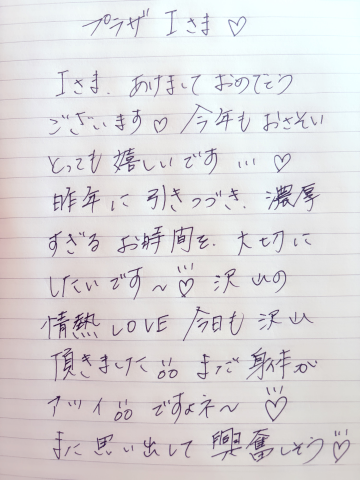 プラザ Iさま ♡
Iさま、あけまして おめでとう
ございます♡ 今年も おさそい
とっても 嬉しいです … ♡
昨年に 引きつづき、濃厚
すぎる お時間を、大切に
したいです〜♡ 沢山の
情熱 LOVE 今日も 沢山
頂きました まだ 身体が
アツイ ですよネ〜 ♡
また 思い出して 興奮しそう♡